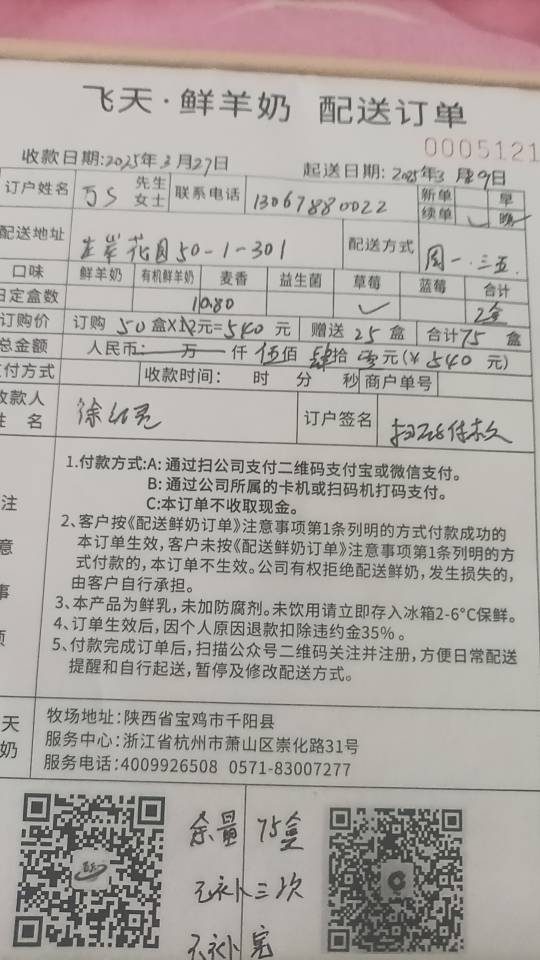 飞天·鲜羊奶 配送订单
0005121
收款日期:2025年3月27日 起送日期:2025年3月29日
订户姓名 先生 女士 联系电话 13067880022 新单 早
续单 晚
配送地址 左岸花园50-1-301 配送方式 周一.三五.
口味 鲜羊奶 有机鲜羊奶 麦香 益生菌 草莓 蓝莓 合计
日定盒数 10.80 ✓ 2盒
订购价 订购50盒X 元=540元 赠送25盒 合计75盒
总金额 人民币: 万 仟伍佰肆拾零元(¥540元)
付方式 收款时间: 时 分 秒 商户单号
收款人
姓 名 订户签名 扫码付款
注
意
事
项
1.付款方式:A: 通过扫公司支付二维码支付宝或微信支付。
B: 通过公司所属的卡机或扫码机打码支付。
C:本订单不收取现金。
2、客户按《配送鲜奶订单》注意事项第1条列明的方式付款成功的
本订单生效,客户未按《配送鲜奶订单》注意事项第1条列明的方
式付款的,本订单不生效。公司有权拒绝配送鲜奶,发生损失的,
由客户自行承担。
3、本产品为鲜乳,未加防腐剂。未饮用请立即存入冰箱2-6°C保鲜。
4、订单生效后,因个人原因退款扣除违约金35%。
5、付款完成订单后,扫描公众号二维码关注并注册,方便日常配送
提醒和自行起送,暂停及修改配送方式。
天
奶
牧场地址:陕西省宝鸡市千阳县
服务中心:浙江省杭州市萧山区崇化路31号
服务电话:4009926508 0571-83007277
余量 75盒
补三次
补完